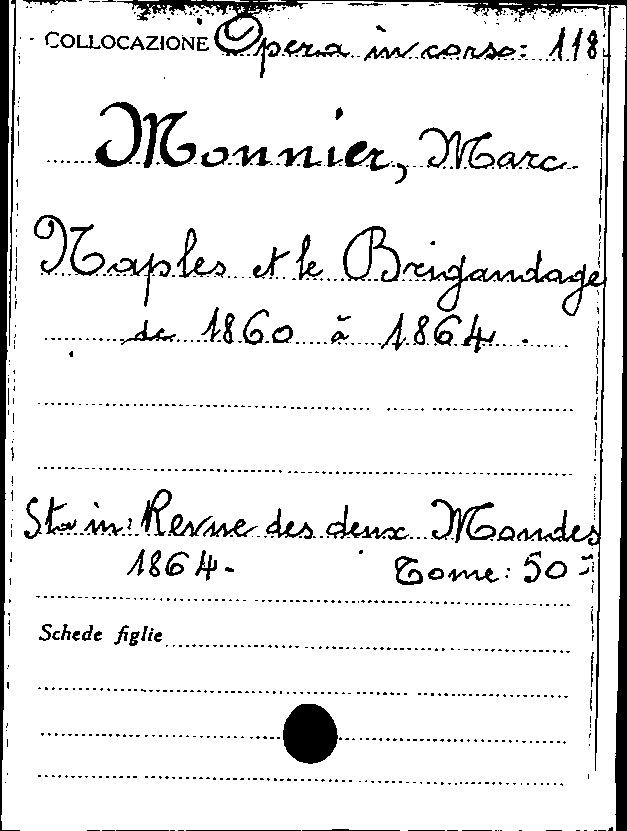 COLLOCAZIONE Opera in corso: 118
Monnier, Marc
Naples et le Brigandage
de 1860 à 1864.
Sta in: Revue des deux Mondes
1864. Tome: 50º
Schede figlie